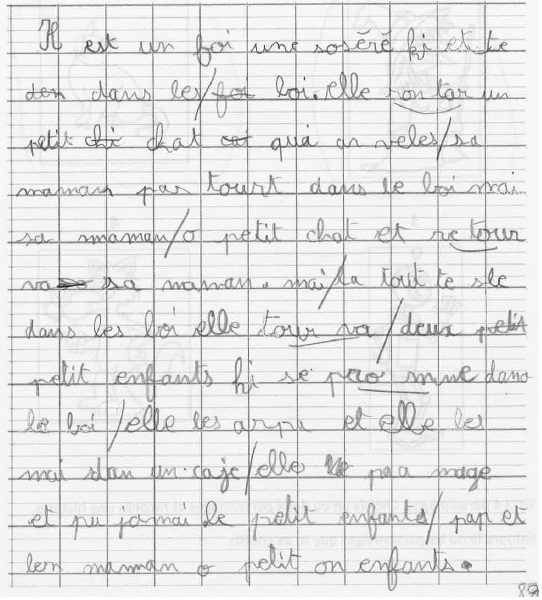 Il est un foi une soséré ki et te
den dans les / foi boi. elle ron tar un
petit chi chat qui an veles / sa
maman pas tourt dans le boi mai
sa mmaman / o petit chat et re tour
va sa maman. mai / la tout te sle
dans les boi elle tour va / deux petit
petit enfants ki se pro mne dans
le boi / elle les arpu et elle les
mai sdan un caje / elle paa mage
et pu jamai le petit enfants / pap et
len manman o petit on enfants.
89